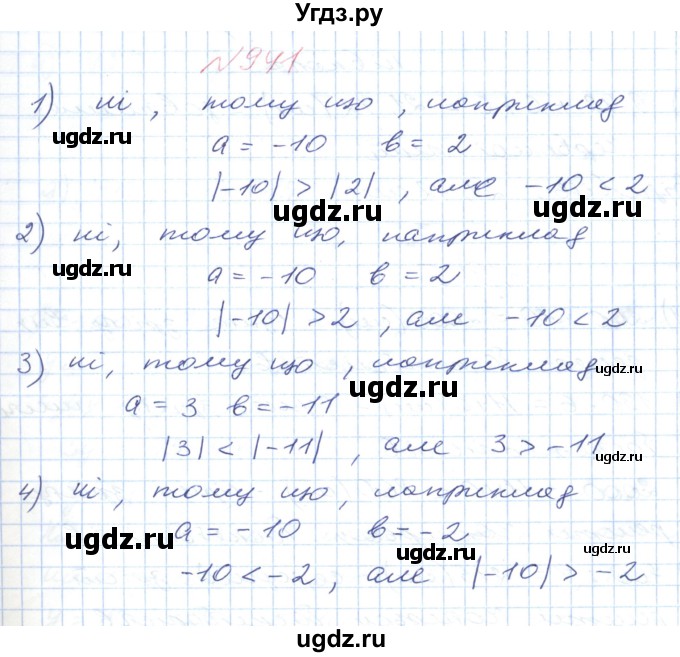 Угдз.ру
№941
1) ні, тому що, наприклад
ugdz.ru
a = -10 в = 2
|-10| > |2|, але -10 < 2
ugdz.ru ugdz.ru
2) ні, тому що, наприклад
ugdz.ru
a = -10 в = 2
|-10| > 2, але -10 < 2
3) ні, тому що, наприклад
ugdz.ru
ugdz.ru
a = 3 в = -11
|3| < |-11|, але 3 > -11
ugdz.ru
4) ні, тому що, наприклад
a = -10 в = -2
ugdz.ru ugdz.ru ugdz.ru
-10 < -2, але |-10| > -2
ugdz.ru